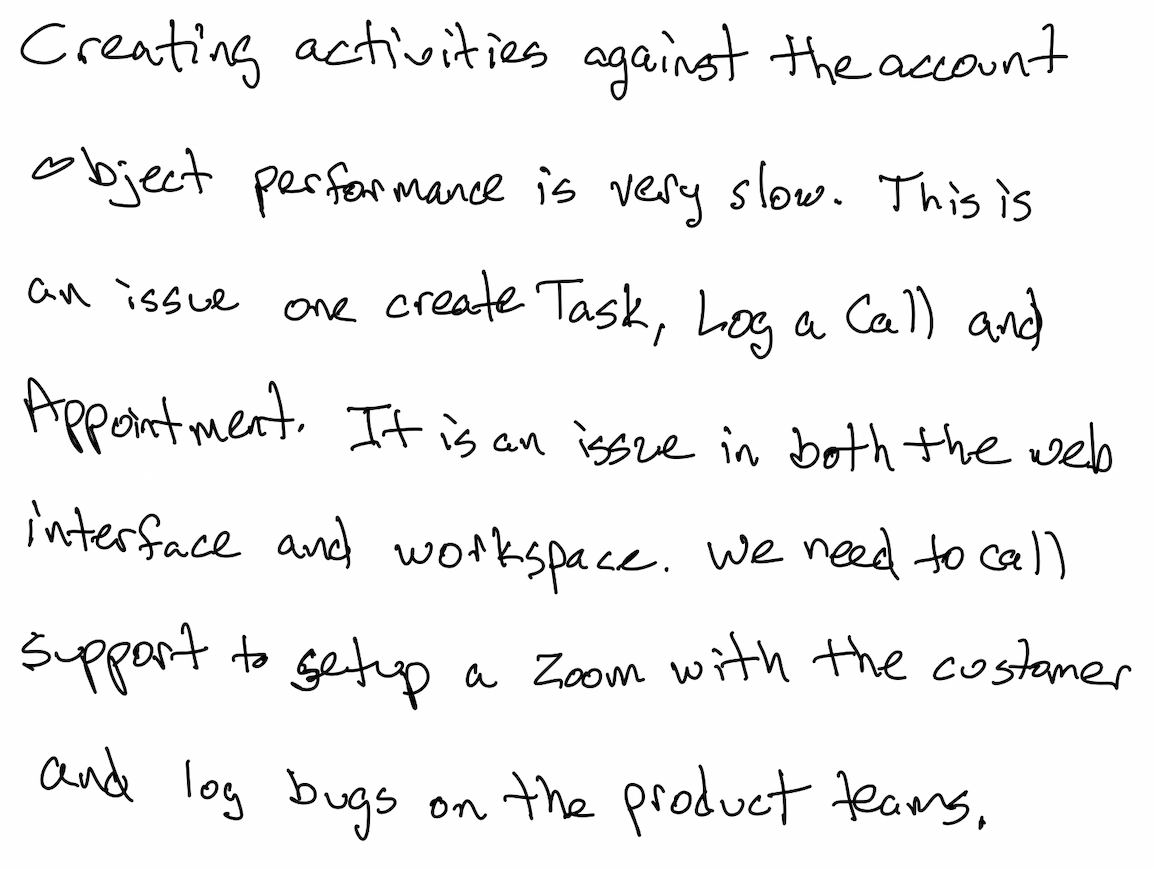 Creating activities against the account
object performance is very slow. This is
an issue one create Task, Log a Call and
Appointment. It is an issue in both the web
interface and workspace. We need to call
support to setup a Zoom with the customer
and log bugs on the product teams.